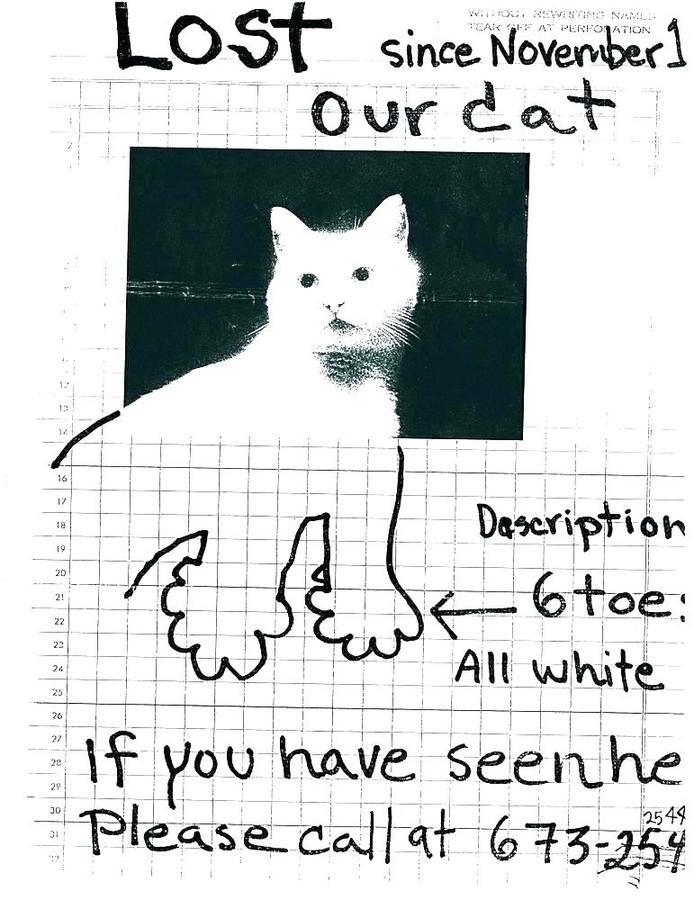 WITHOUT REWRITING NAMES
TEAR OFF AT PERFORATION
Lost since November 1
our cat
1
2
12
13
14
16
17
18
Description
19
20
6 toes
21
22
23
All white
24
25
26
27
If you have seen he
28
29
30
2544
Please call at 673-254
31
32